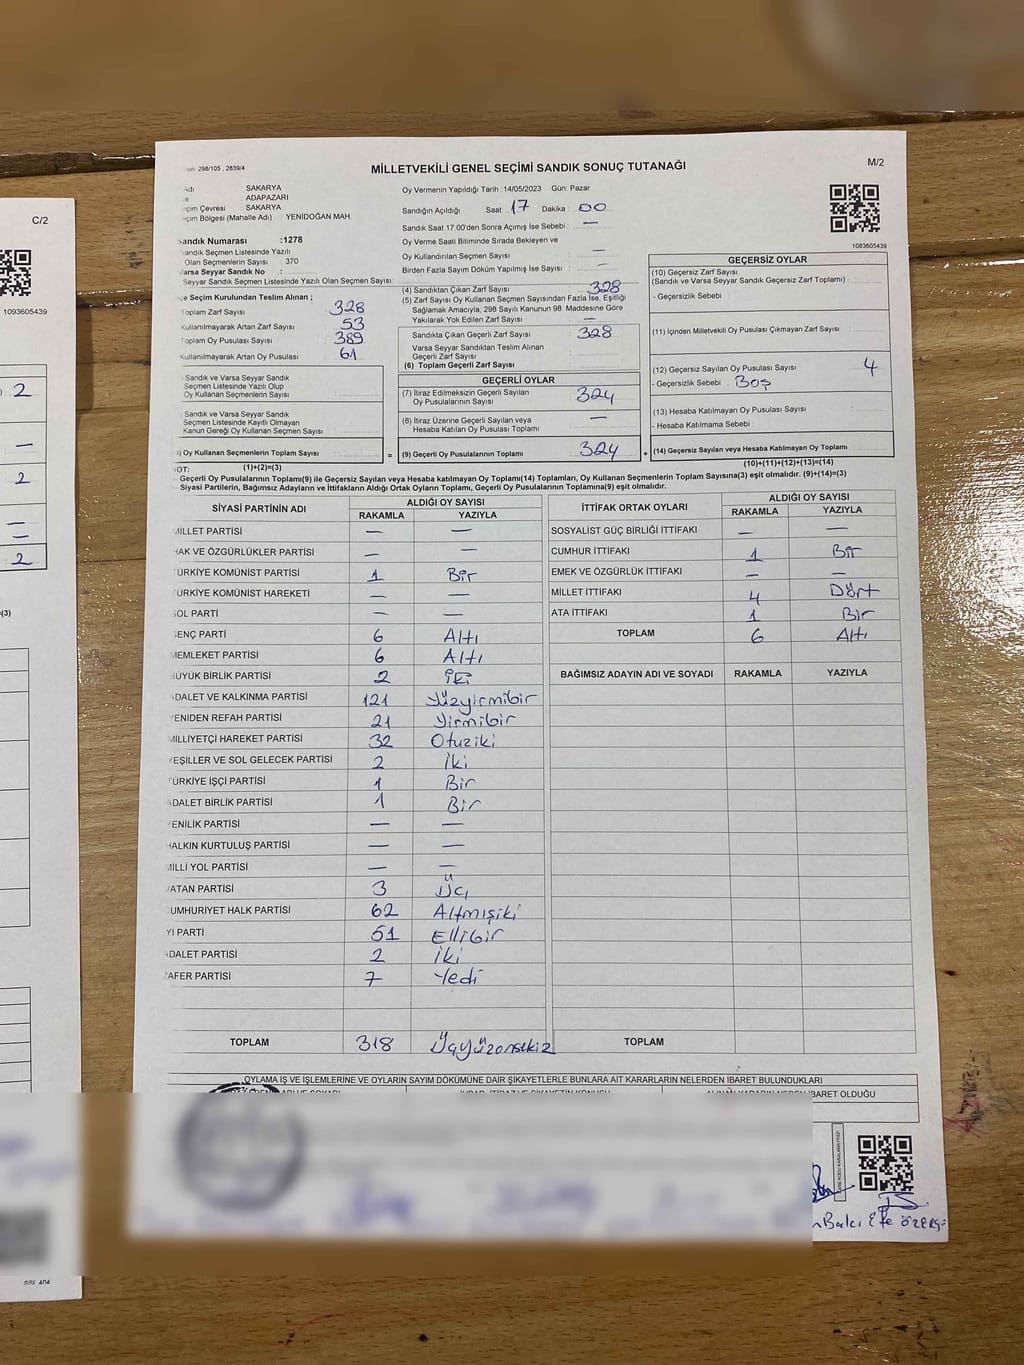 C/2
1093605439
2
—
2
—
—
2
298/105 , 2839/4
MİLLETVEKİLİ GENEL SEÇİMİ SANDIK SONUÇ TUTANAĞI
M/2
Adı SAKARYA
ADAPAZARI
çim Çevresi SAKARYA
çim Bölgesi (Mahalle Adı) : YENİDOĞAN MAH.
Sandık Numarası :1278
Sandık Seçmen Listesinde Yazılı
Olan Seçmenlerin Sayısı : 370
Varsa Seyyar Sandık No :
Seyyar Sandık Seçmen Listesinde Yazılı Olan Seçmen Sayısı:
çe Seçim Kurulundan Teslim Alınan ;
Toplam Zarf Sayısı 328
Kullanılmayarak Artan Zarf Sayısı 53
Toplam Oy Pusulası Sayısı 389
Kullanılmayarak Artan Oy Pusulası 61
Sandık ve Varsa Seyyar Sandık
Seçmen Listesinde Yazılı Olup
Oy Kullanan Seçmenlerin Sayısı
Sandık ve Varsa Seyyar Sandık
Seçmen Listesinde Kayıtlı Olmayan
Kanun Gereği Oy Kullanan Seçmen Sayısı
) Oy Kullanan Seçmenlerin Toplam Sayısı =
(1)+(2)=(3)
Oy Vermenin Yapıldığı Tarih : 14/05/2023 Gün: Pazar
Sandığın Açıldığı Saat : 17 Dakika : 00
Sandık Saat 17.00'den Sonra Açımış İse Sebebi : —
Oy Verme Saati Bitiminde Sırada Bekleyen ve
Oy Kullandırılan Seçmen Sayısı : —
Birden Fazla Sayım Döküm Yapılmış İse Sayısı : —
(4) Sandıktan Çıkan Zarf Sayısı : 328
(5) Zarf Sayısı Oy Kullanan Seçmen Sayısından Fazla İse, Eşitliği
Sağlamak Amacıyla, 298 Sayılı Kanunun 98. Maddesine Göre
Yakılarak Yok Edilen Zarf Sayısı : —
Sandıkta Çıkan Geçerli Zarf Sayısı : 328
Varsa Seyyar Sandıktan Teslim Alınan
Geçerli Zarf Sayısı
(6) Toplam Geçerli Zarf Sayısı
GEÇERLİ OYLAR
(7) İtiraz Edilmeksizin Geçerli Sayılan
Oy Pusulalarının Sayısı 324
(8) İtiraz Üzerine Geçerli Sayılan veya
Hesaba Katılan Oy Pusulası Toplamı —
(9) Geçerli Oy Pusulalarının Toplamı 324 +
1083605439
GEÇERSİZ OYLAR
(10) Geçersiz Zarf Sayısı
(Sandık ve Varsa Seyyar Sandık Geçersiz Zarf Toplamı) :
- Geçersizlik Sebebi :
(11) İçinden Milletvekili Oy Pusulası Çıkmayan Zarf Sayısı
(12) Geçersiz Sayılan Oy Pusulası Sayısı 4
- Geçersizlik Sebebi : Boş
(13) Hesaba Katılmayan Oy Pusulası Sayısı
- Hesaba Katılmama Sebebi :
(14) Geçersiz Sayılan veya Hesaba Katılmayan Oy Toplamı
(10)+(11)+(12)+(13)=(14)
OT:
Geçerli Oy Pusulalarının Toplamı(9) ile Geçersiz Sayılan veya Hesaba katılmayan Oy Toplamı(14) Toplamları, Oy Kullanan Seçmenlerin Toplam Sayısına(3) eşit olmalıdır. (9)+(14)=(3)
Siyasi Partilerin, Bağımsız Adayların ve İttifakların Aldığı Ortak Oyların Toplamı, Geçerli Oy Pusulalarının Toplamına(9) eşit olmalıdır.
SİYASİ PARTİNİN ADI ALDIĞI OY SAYISI
RAKAMLA YAZIYLA
MİLLET PARTİSİ — —
HAK VE ÖZGÜRLÜKLER PARTİSİ — —
TÜRKİYE KOMÜNİST PARTİSİ 1 Bir
TÜRKİYE KOMÜNİST HAREKETİ — —
SOL PARTİ — —
GENÇ PARTİ 6 Altı
MEMLEKET PARTİSİ 6 Altı
BÜYÜK BİRLİK PARTİSİ 2 İki
ADALET VE KALKINMA PARTİSİ 121 Yüzyirmibir
YENİDEN REFAH PARTİSİ 21 Yirmibir
MİLLİYETÇİ HAREKET PARTİSİ 32 Otuziki
YEŞİLLER VE SOL GELECEK PARTİSİ 2 İki
TÜRKİYE İŞÇİ PARTİSİ 1 Bir
ADALET BİRLİK PARTİSİ 1 Bir
YENİLİK PARTİSİ — —
HALKIN KURTULUŞ PARTİSİ — —
MİLLİ YOL PARTİSİ — —
VATAN PARTİSİ 3 Üç
CUMHURİYET HALK PARTİSİ 62 Altmışiki
İYİ PARTİ 51 Ellibir
ADALET PARTİSİ 2 İki
ZAFER PARTİSİ 7 Yedi
TOPLAM 318 Üçyüzonsekiz
İTTİFAK ORTAK OYLARI ALDIĞI OY SAYISI
RAKAMLA YAZIYLA
SOSYALİST GÜÇ BİRLİĞİ İTTİFAKI — —
CUMHUR İTTİFAKI 1 Bir
EMEK VE ÖZGÜRLÜK İTTİFAKI — —
MİLLET İTTİFAKI 4 Dört
ATA İTTİFAKI 1 Bir
TOPLAM 6 Altı
BAĞIMSIZ ADAYIN ADI VE SOYADI RAKAMLA YAZIYLA
TOPLAM
OYLAMA İŞ VE İŞLEMLERİNE VE OYLARIN SAYIM DÖKÜMÜNE DAİR ŞİKAYETLERLE BUNLARA AİT KARARLARIN NELERDEN İBARET BULUNDUKLARI
İBARET OLDUĞU
Balcı Efe